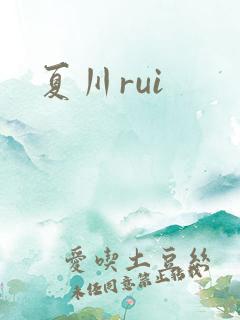 夏川rui
愛喫土豆絲
未经同意禁止转载